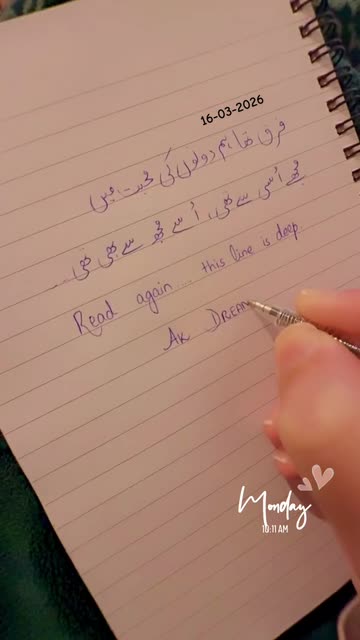 16-03-2026
فرق تھا ہم دونوں کی محبت میں
مجھے اُسی سے تھی، اُسے مجھ سے بھی تھی ....
Read again .... this line is deep.
AK DREAM
Monday
10:11 AM